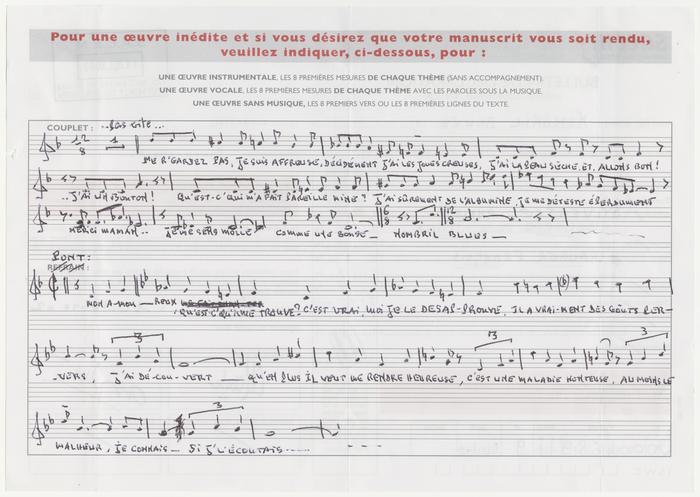 Pour une œuvre inédite et si vous désirez que votre manuscrit vous soit rendu,
veuillez indiquer, ci-dessous, pour :
UNE ŒUVRE INSTRUMENTALE, LES 8 PREMIÈRES MESURES DE CHAQUE THÈME (SANS ACCOMPAGNEMENT).
UNE ŒUVRE VOCALE, LES 8 PREMIÈRES MESURES DE CHAQUE THÈME AVEC LES PAROLES SOUS LA MUSIQUE.
UNE ŒUVRE SANS MUSIQUE, LES 8 PREMIERS VERS OU LES 8 PREMIÈRES LIGNES DU TEXTE.
COUPLET : ..PAS VITE...
12
8
ME R'GARDEZ PAS, JE SUIS AFFREUSE, DÉCIDÉMENT J'AI LES JOUES CREUSES, J'AI LA PEAU SÈCHE, ET, ALLONS BON !
..J'AI UN BOUTON ! QU'EST-C'QUI M'A FAIT PAREILLE MINE ! J'AI SÛREMENT DE L'ALBUMINE, JE ME DÉTESTE ÉPERDUMENT
6
8
12
8
MERCI MAMAN.. JE ME SENS MOLLE COMME UNE BOUSE_ NOMBRIL BLUES_
PONT:
REFRAIN :
MON A-MOU_REUX
QU'EST-C'QU'IL ME TROUVE? C'EST VRAI, MOI JE LE DÉSAP-PROUVE, IL A VRAI-MENT DES GOÛTS PER-
3
3
3
-VERS, J'AI DÉ-COU-VERT _ QU'EN PLUS IL VEUT ME RENDRE HEUREUSE, C'EST UNE MALADIE HONTEUSE, AU MOINS LE
3
MALHEUR, JE CONNAIS_ SI J'L'ÉCOUTAIS......